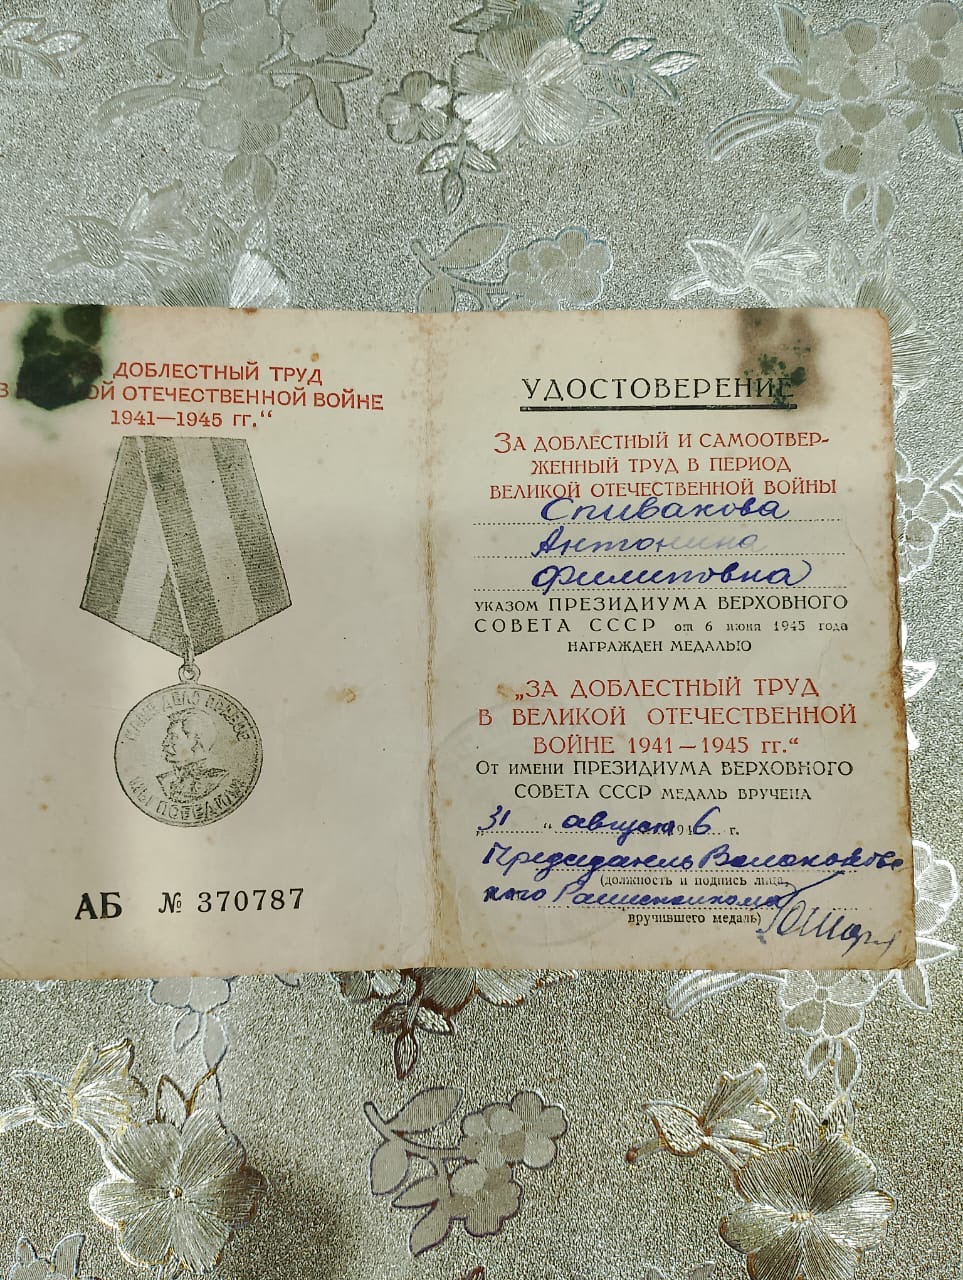 ДОБЛЕСТНЫЙ ТРУД
В ОЙ ОТЕЧЕСТВЕННОЙ ВОЙНЕ
1941—1945 гг.“
НАШЕ ДЕЛО ПРАВОЕ
МЫ ПОБЕДИЛИ
АБ № 370787
УДОСТОВЕРЕНИЕ
ЗА ДОБЛЕСТНЫЙ И САМООТВЕР-
ЖЕННЫЙ ТРУД В ПЕРИОД
ВЕЛИКОЙ ОТЕЧЕСТВЕННОЙ ВОЙНЫ
Спивакова
Антонина
Филиповна
УКАЗОМ ПРЕЗИДИУМА ВЕРХОВНОГО
СОВЕТА СССР от 6 июня 1945 года
НАГРАЖДЕН МЕДАЛЬЮ
„ЗА ДОБЛЕСТНЫЙ ТРУД
В ВЕЛИКОЙ ОТЕЧЕСТВЕННОЙ
ВОЙНЕ 1941—1945 гг.“
От ИМЕНИ ПРЕЗИДИУМА ВЕРХОВНОГО
СОВЕТА СССР МЕДАЛЬ ВРУЧЕНА
„31“ августа 1946 г.
Председатель
(должность и подпись лица,
кого Райисполкома
вручившего медаль)